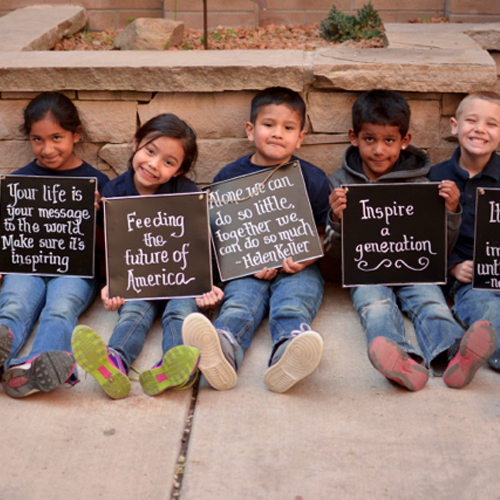 Your life is
your message
to the world.
Make sure it's
inspiring
Feeding
the
future of
America
Alone we can
do so little,
together we
can do so much
~Helen Keller
Inspire
a
generation
It
im
unt